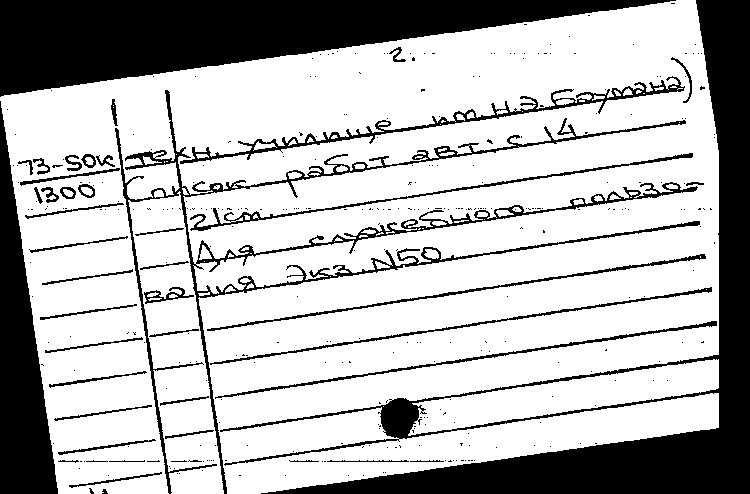 2.
73-50к техн. училище им. Н.Э. Баумана).
1300 Список работ авт.: с 14.
21см.
Для служебного пользо-
вания Экз. N50.